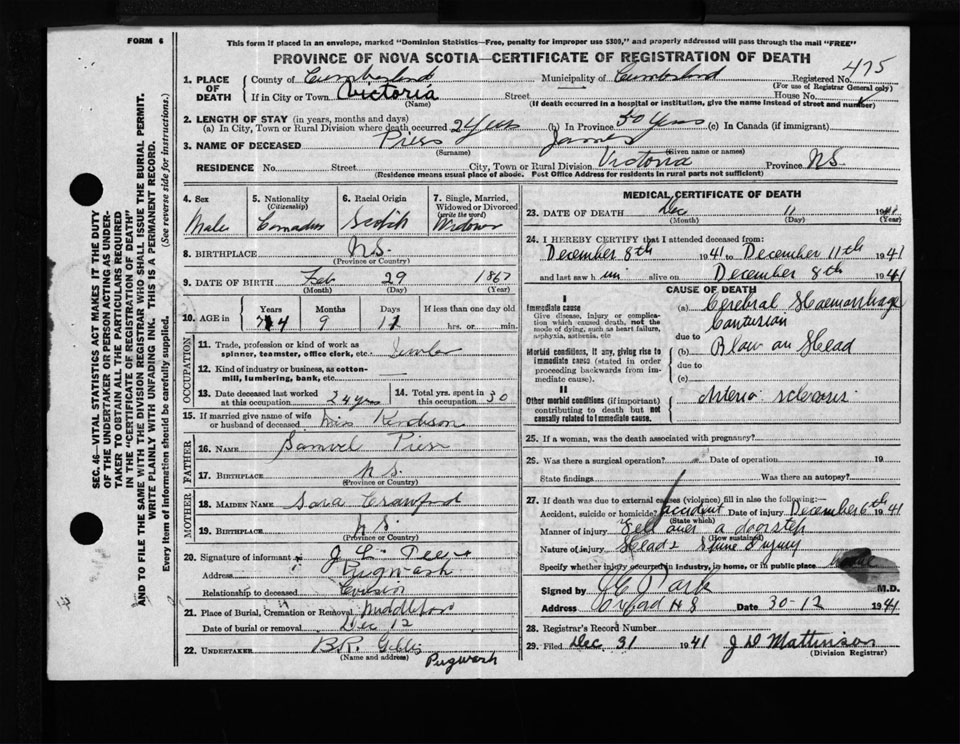 FORM 6
This form if placed in an envelope, marked "Dominion Statistics—Free, penalty for improper use $300," and properly addressed will pass through the mail "FREE"
PROVINCE OF NOVA SCOTIA—CERTIFICATE OF REGISTRATION OF DEATH
1. PLACE OF DEATH County of Cumberland Municipality of Cumberland Registered No. 475
(For use of Registrar General only)
If in City or Town Victoria Street House No.
(Name) (If death occurred in a hospital or institution, give the name instead of street and number)
2. LENGTH OF STAY (in years, months and days)
(a) In City, Town or Rural Division where death occurred 24 yrs (b) In Province 50 years (c) In Canada (if immigrant)
3. NAME OF DECEASED Piers James
(Surname) (Given name or names)
RESIDENCE No. Street City, Town or Rural Division Victoria Province N.S.
(Residence means usual place of abode. Post Office Address for residents in rural parts not sufficient)
4. Sex Male
5. Nationality (Citizenship) Canadian
6. Racial Origin Scotch
7. Single, Married, Widowed or Divorced (write the word) Widower
8. BIRTHPLACE N.S.
(Province or Country)
9. DATE OF BIRTH Feb 29 1867
(Month) (Day) (Year)
10. AGE in Years 74 Months 9 Days If less than one day old hrs. or min.
OCCUPATION
11. Trade, profession or kind of work as spinner, teamster, office clerk, etc.
12. Kind of industry or business, as cotton-mill, lumbering, bank, etc.
13. Date deceased last worked at this occupation 24 yrs
14. Total yrs. spent in this occupation 30
15. If married give name of wife or husband of deceased
FATHER
16. NAME Samuel Piers
17. BIRTHPLACE N.S.
(Province or Country)
MOTHER
18. MAIDEN NAME Sara Crawford
19. BIRTHPLACE N.S.
(Province or Country)
20. Signature of informant J L Piers
Address Pugwash
Relationship to deceased Cousin
21. Place of Burial, Cremation or Removal
Date of burial or removal Dec 12
22. UNDERTAKER B.R. Gillis
(Name and address) Pugwash
MEDICAL CERTIFICATE OF DEATH
23. DATE OF DEATH Dec 11 1941
(Month) (Day) (Year)
24. I HEREBY CERTIFY that I attended deceased from:
December 8th 1941 to December 11th 1941
and last saw him alive on December 8th 1941
CAUSE OF DEATH
I
Immediate cause
Give disease, injury or complication which caused death, not the mode of dying, such as heart failure, asphyxia, asthenia, etc
(a) Cerebral Haemorrhage
due to
Morbid conditions, if any, giving rise to immediate cause (stated in order proceeding backwards from immediate cause).
(b) Blow on Head
due to
(c)
II
Other morbid conditions (if important) contributing to death but not causally related to immediate cause.
Arterio sclerosis
25. If a woman, was the death associated with pregnancy?
26. Was there a surgical operation? Date of operation 19
State findings Was there an autopsy?
27. If death was due to external causes (violence) fill in also the following:—
Accident, suicide or homicide? accident Date of injury December 6th 1941
(State which)
Manner of injury Fell over a doorstep
(How sustained)
Nature of injury Head & Spine Injury
Specify whether injury occurred in industry, in home, or in public place
Signed by M.D.
Address Oxford N S Date 30-12 1941
28. Registrar's Record Number
29. Filed Dec 31 1941 J D Mattinson
(Division Registrar)
SEC. 46—VITAL STATISTICS ACT MAKES IT THE DUTY OF THE UNDERTAKER OR PERSON ACTING AS UNDERTAKER TO OBTAIN ALL THE PARTICULARS REQUIRED IN THE "CERTIFICATE OF REGISTRATION OF DEATH" AND TO FILE THE SAME WITH THE DIVISION REGISTRAR WHO SHALL ISSUE THE BURIAL PERMIT.
WRITE PLAINLY WITH UNFADING INK. THIS IS A PERMANENT RECORD.
Every item of information should be carefully supplied. (See reverse side for instructions.)